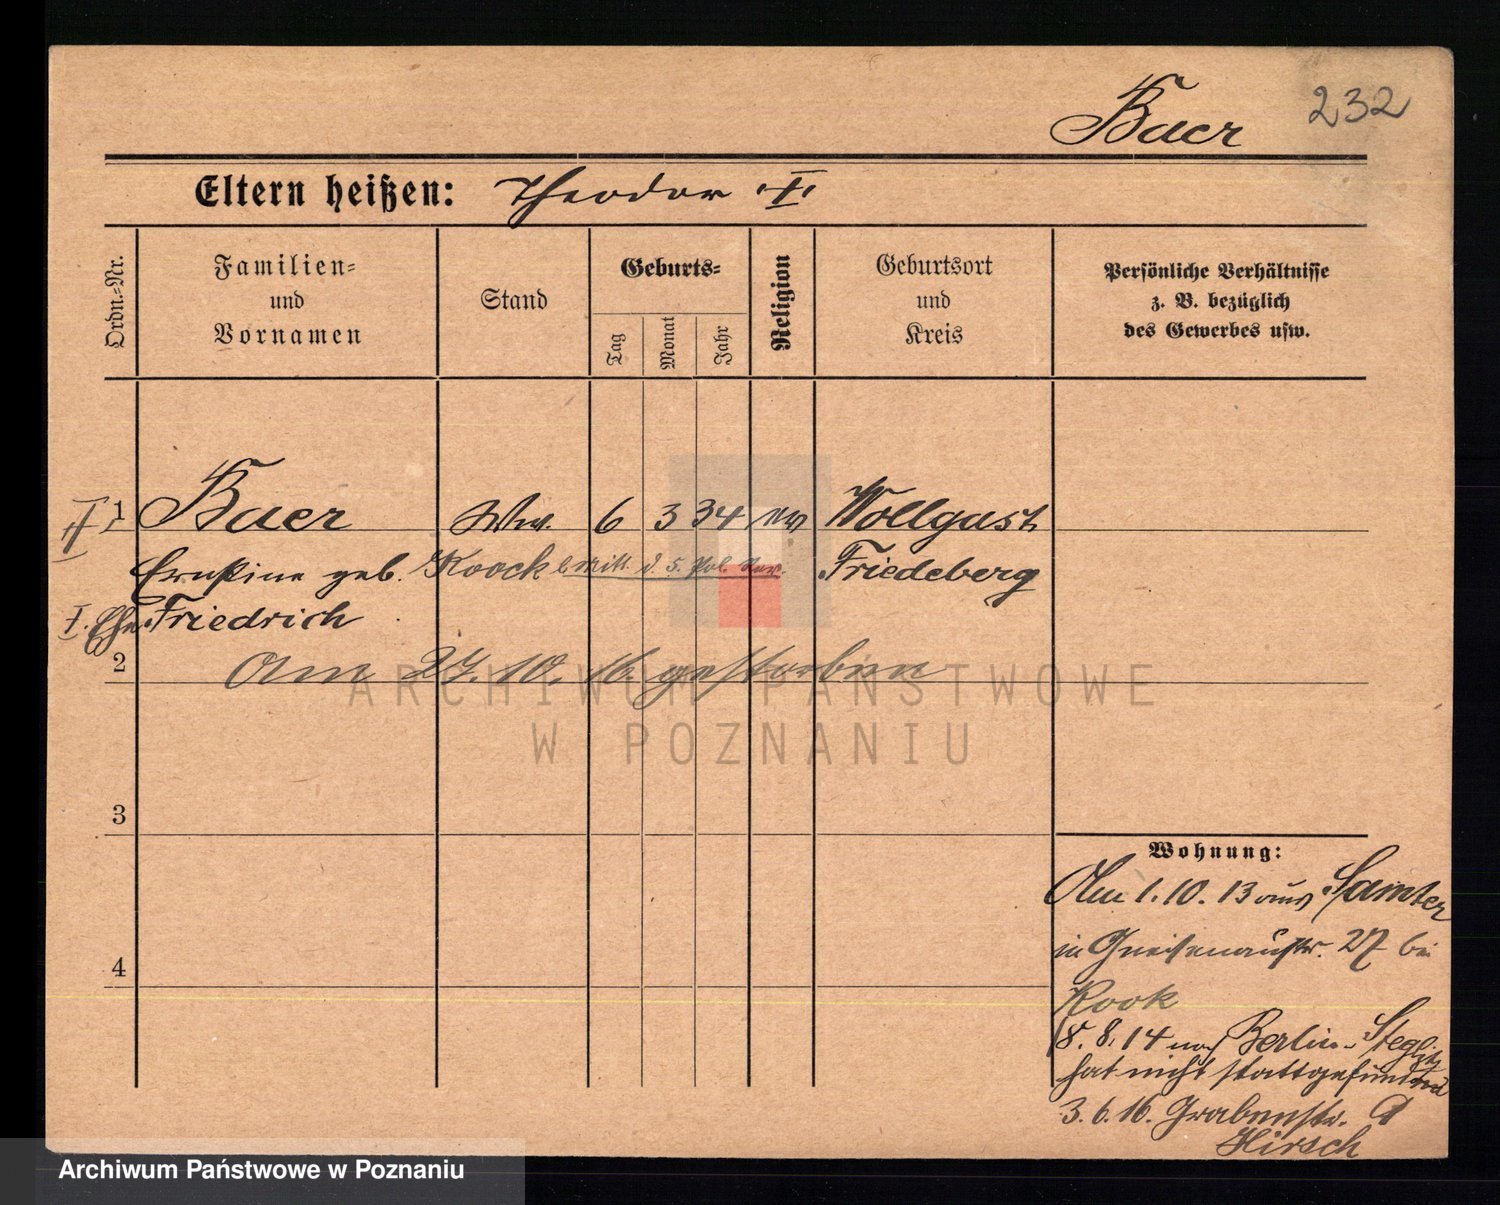 232
Baer
Eltern heißen: Theodor I
Ordn.=Nr.
Familien=
und
Vornamen
Stand
Geburts=
Tag
Monat
Jahr
Religion
Geburtsort
und
Kreis
Persönliche Verhältnisse
z. B. bezüglich
des Gewerbes usw.
II 1 Baer Ww. 6 3 34 ev Wollgast
Ernstine geb. Koock Mitt. d. 5. Pol. Rev. Friedeberg
I. Ehe Friedrich
2 Am 27.10.16. gestorben
3
Wohnung:
Am 1.10.13 aus Samter
in Gneisenaustr. 27 bei
4
Kook
8.14 nach Berlin-Steglitz
hat nicht stattgefunden
3.6.16. Grabenstr.
Hirsch
ARCHIWUM PAŃSTWOWE
W POZNANIU
Archiwum Państwowe w Poznaniu